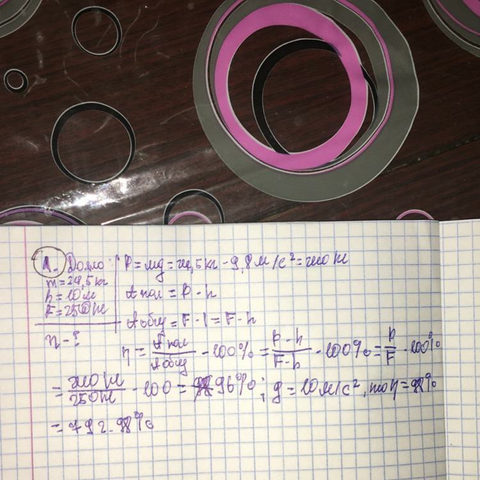 1. Дано: P = mg = 24,5 кг · 9,8 м/с² = 240 Н
m = 24,5 кг
h = 10 м
F = 250 Н
A пол = P · h
A общ = F · l = F · h
η - ?
η = A пол / A общ · 100% = P · h / F · h · 100% = P / F · 100%
= 240 Н / 250 Н · 100 = 96%; g = 10 м/с², то η = 98%
= 98%